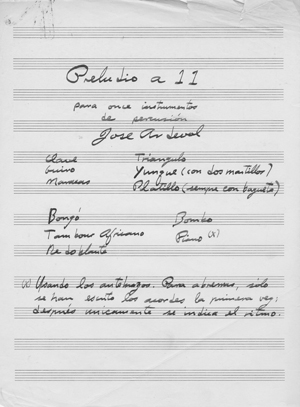 Preludio a 11
para once instrumentos
de percusión
Jose Ardevol
Clave Triángulo
Guiro Yunque (con dos martillos)
Maracas Platillo (siempre con baqueta)
Bongó Bombo
Tambour Africano Piano (x)
Redoblante
(x) Usando los antebrazos. Para abreviar, sólo
se han escrito los acordes la primera vez;
después unicamente se indica el ritmo.